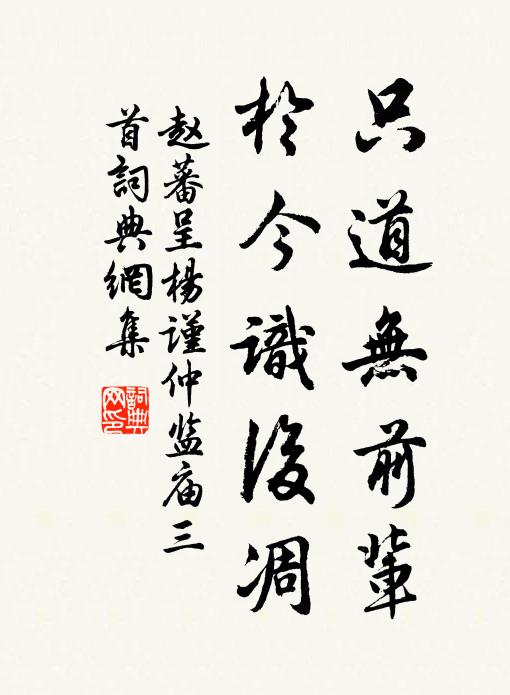 只道無前輩
於今識後凋
赵蕃呈楊谨仲监庙三
首詞典網集
詞典
网印